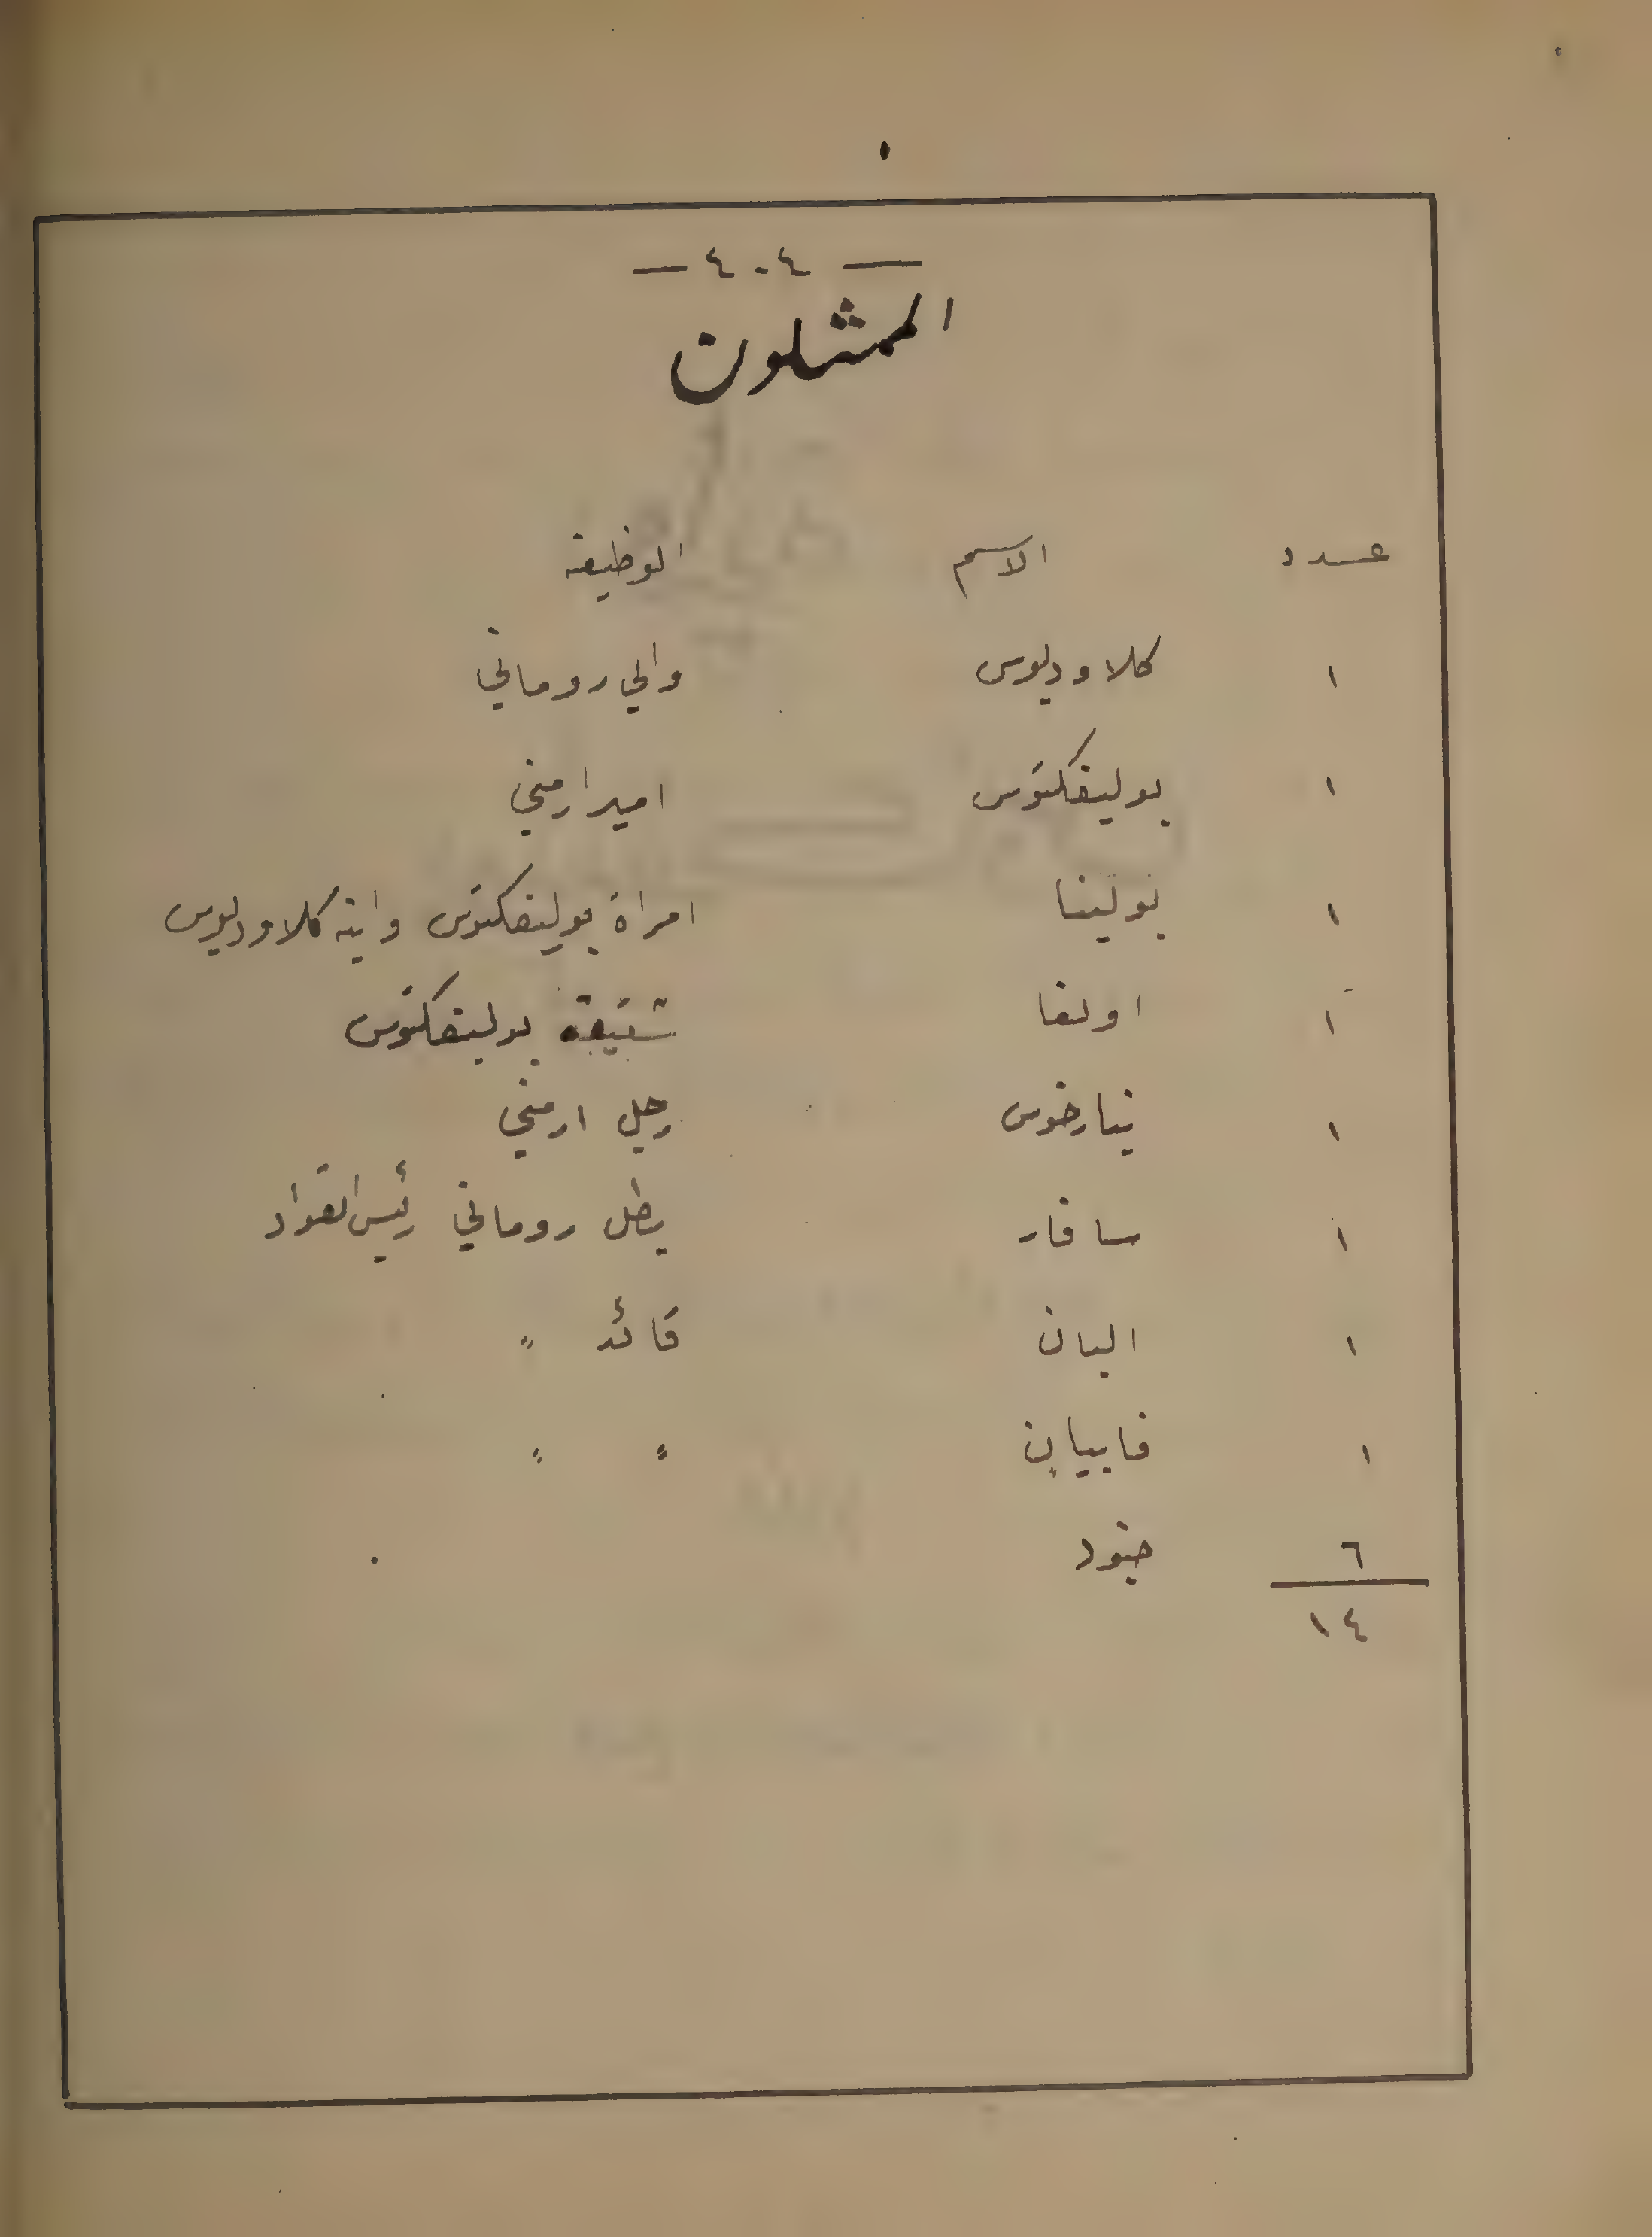 — ٤٠٤ —
الممثلون
عدد الاسم الوظيفة
١ كلاوديوس والي روماني
١ بوليفكتوس امير ارمني
١ بولينا امراة بوليفكتوس وابنة كلاوديوس
١ اولفا شقيقة بوليفكتوس
١ نيارخوس رجل ارمني
١ سافار بطل روماني رئيس القواد
١ البان قائد "
١ فابيان " "
٦ جنود
١٤